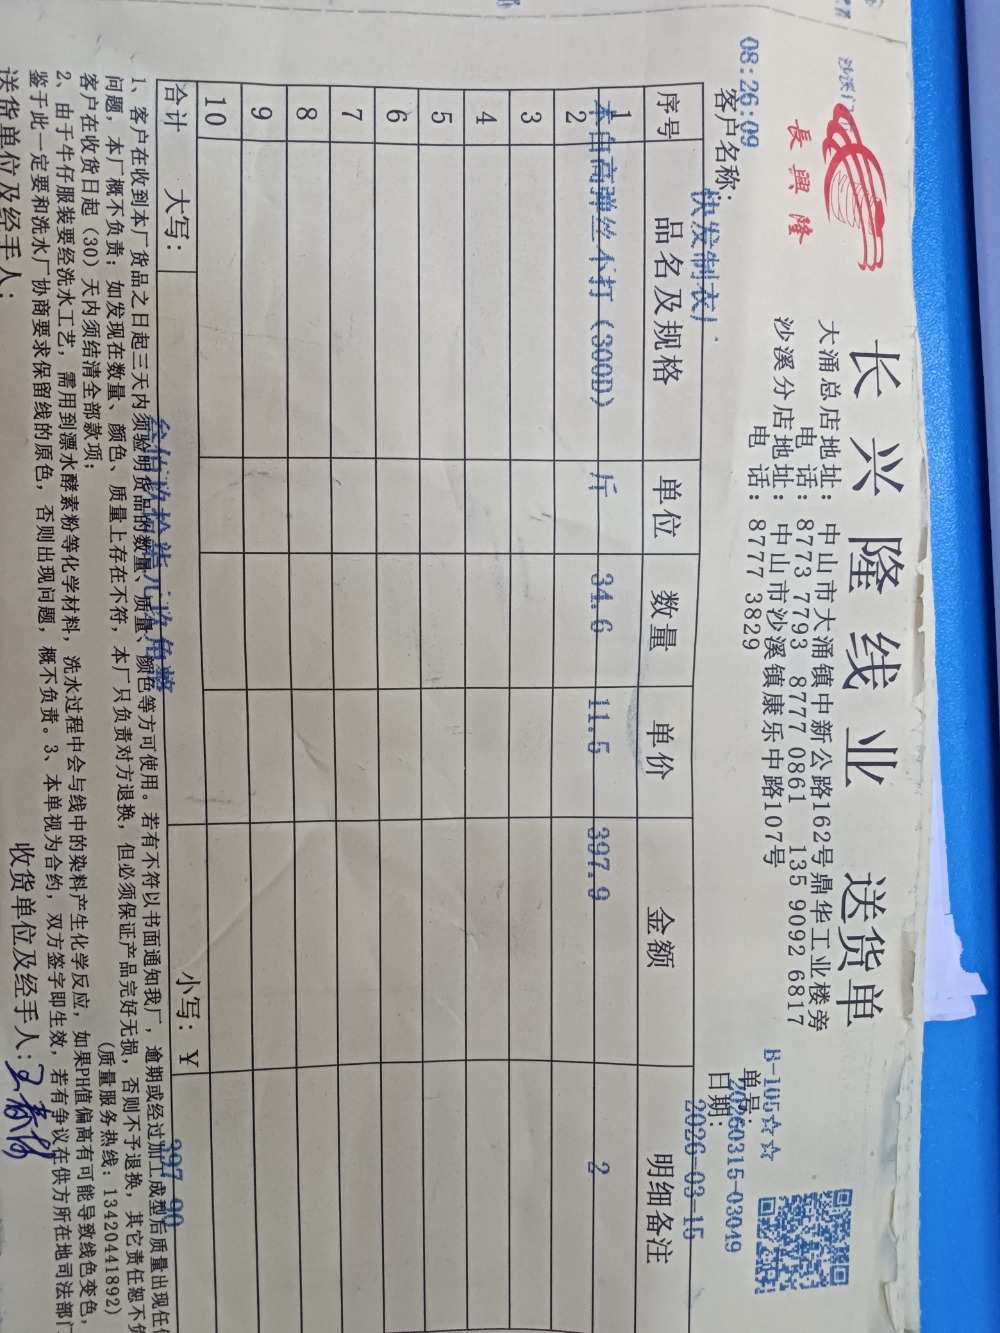 長興隆
长兴隆线业 送货单
大涌总店地址：中山市大涌镇中新公路162号鼎华工业楼旁
电 话：8773 7793 8777 0861 135 9092 6817
沙溪分店地址：中山市沙溪镇康乐中路107号
电 话：8777 3829
B-105☆☆
08:26:09
单号：20260315-03049
客户名称：快发制衣厂
日期：2026-03-15
序号 品名及规格 单位 数量 单价 金额 明细备注
1 本白高弹丝不打（300D） 斤 34.6 11.5 397.9 2
2
3
4
5
6
7
8
9
10
合计 大写：叁佰玖拾柒元玖角整 小写：￥ 397.90
1、客户在收到本厂货品之日起三天内须验明货品的数量、质量、颜色等方可使用。若有不符以书面通知我厂，逾期或经过加工成型后质量出现任何
问题，本厂概不负责；如发现在数量、颜色、质量上存在不符，本厂只负责对方退换，但必须保证产品完好无损，否则不予退换，其它责任恕不负
客户在收货日起（30）天内须结清全部款项； （质量服务热线：13420441892）
2、由于牛仔服装要经洗水工艺，需用到漂水酵素粉等化学材料，洗水过程中会与线中的染料产生化学反应，如果PH值偏高有可能导致线色变色，
鉴于此一定要和洗水厂协商要求保留线的原色，否则出现问题，概不负责。3、本单视为合约，双方签字即生效，若有争议在供方所在地司法部门
送货单位及经手人： 收货单位及经手人：